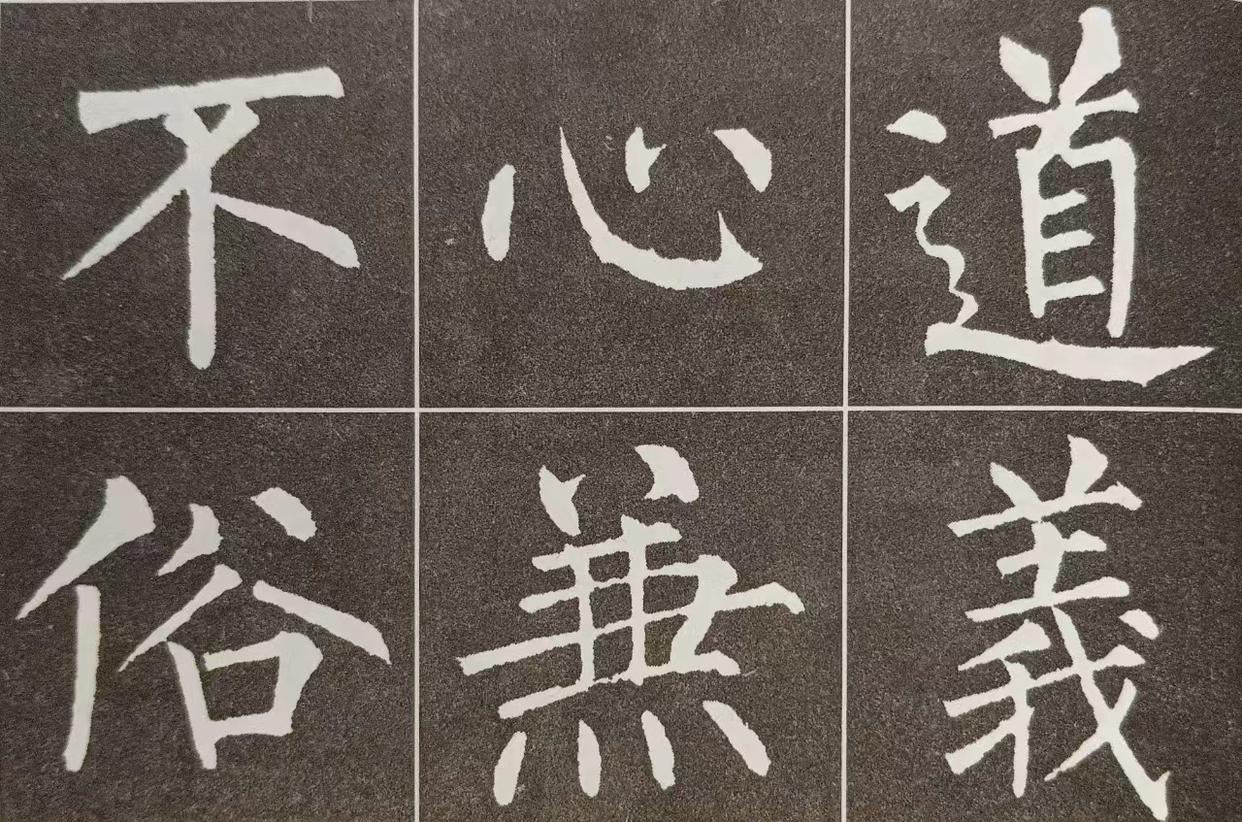 道義
心兼
不俗